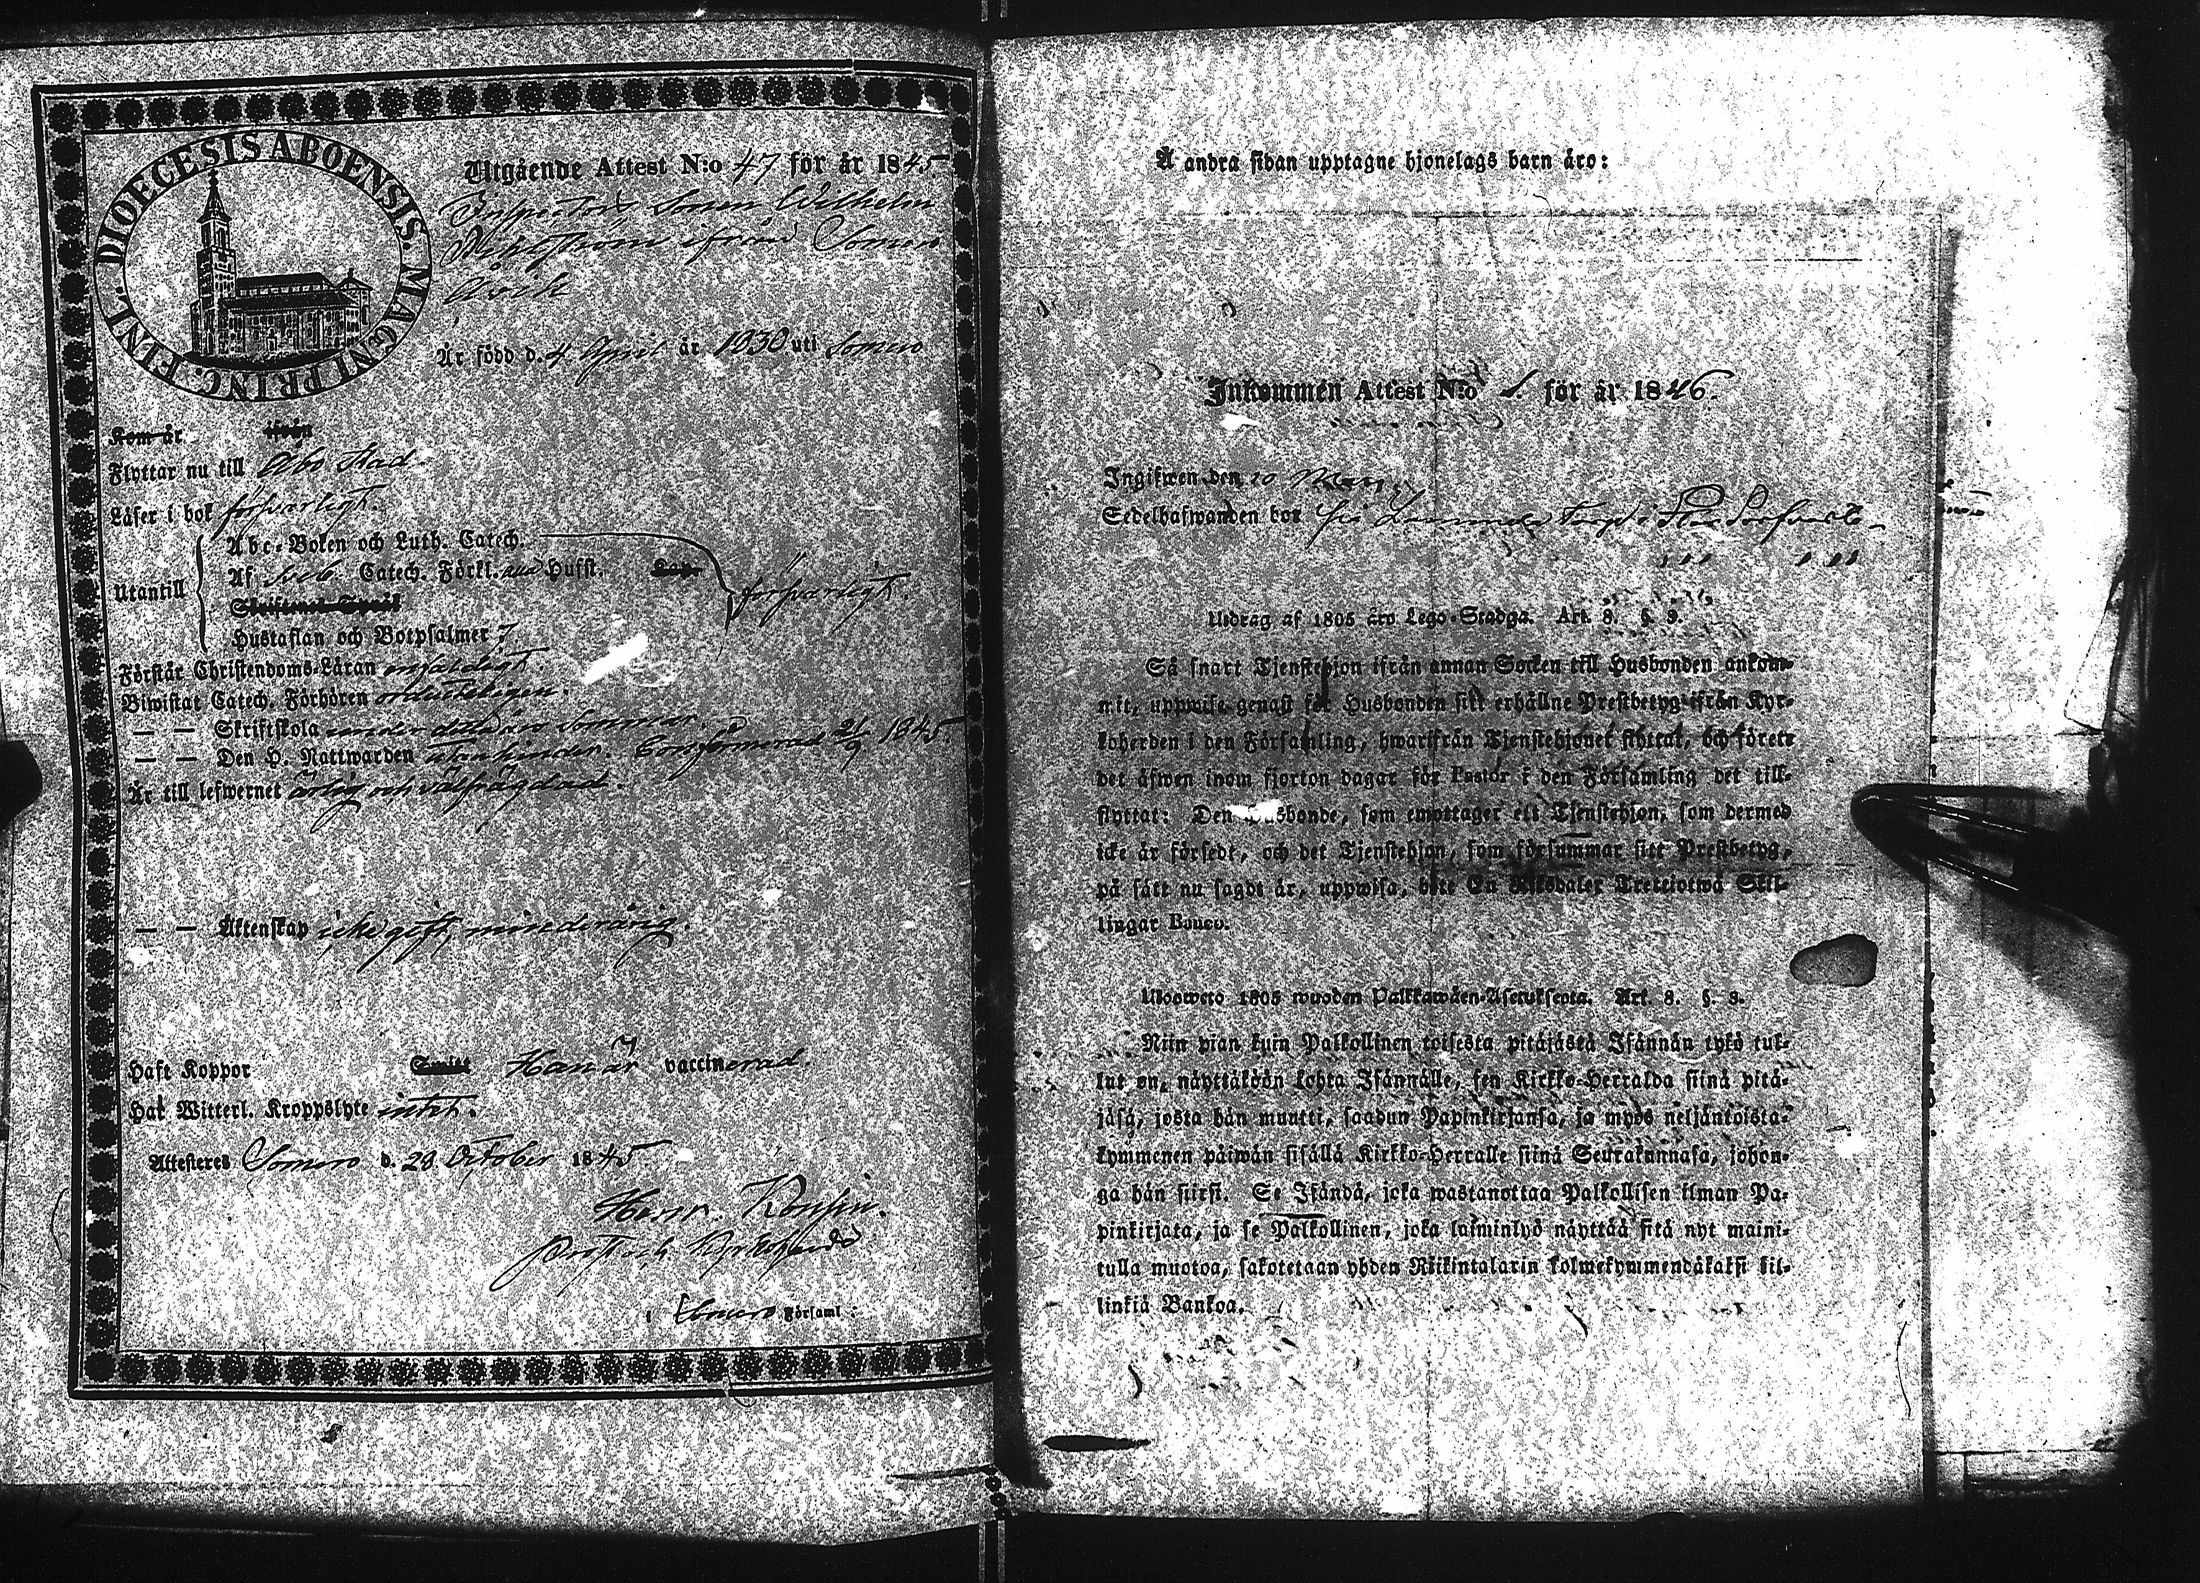 DIOECESIS ABOENSIS. MAGNI PRINC. FINL.
Utgående Attest N:o 47 för år 1845.
Inspectors Sonen Wilhelm
ifrån Somero
Är född d. 4 April år 1830 uti Somero
Kom år ifrån
Flyttar nu till Åbo Stad
Läser i bok försvarligt.
Utantill
Abc-Boken och Luth. Catech.
Af Sveb. Catech. Förkl. Hufst. Cap.
försvarligt.
Skriftenes Språk
Hustaflan och Botpsalmer 7.
Förstår Christendoms-Läran enfaldigt.
Biwistat Catech. Förhören ordenteligen.
— — Skriftskola under detta års Sommar.
— — Den H. Nattwarden utan hinder. Confirmerad 21/9 1845.
Är till lefwernet ärlig och välfrägdad.
— — Äktenskap icke gift, minderårig.
Haft Koppor Smitt Han är vaccinerad.
Har Witterl. Kroppslyte intet.
Attesteres Somero d. 28 October 1845.
Henr. Konsin.
Prost och Kyrkoherde
i Somero Församl.
Å andra sidan upptagne hjonelags barn äro:
Inkommen Attest N:o 1. för år 1846.
Ingifwen den 10 Mars
Sedelhafwanden bor
Utdrag af 1805 års Lego-Stadga. Art. 8. §. 9.
Så snart Tjenstehjon ifrån annan Socken till Husbonden ankom-
mit, uppwise genast för Husbonden sitt erhållne Prestbetyg ifrån Kyr-
koherden i den Församling, hwarifrån Tjenstehjonet flyttat, och förete
det äfwen inom fjorton dagar för Pastor i den Församling det till-
flyttat: Den Husbonde, som emottager ett Tjenstehjon, som dermed
icke är försedt, och det Tjenstehjon, som försummar sitt Prestbetyg,
på sätt nu sagdt är, uppwisa, böte En Riksdaler Trettiotwå Skil-
lingar Banco.
Ulosweto 1805 wuoden Palkkawäen-Asetuksesta. Art. 8. §. 9.
Niin pian kuin Palkollinen toisesta pitäjästä Isännän tykö tul-
lut on, näyttäköön kohta Isännälle, sen Kirkko-Herralda siinä pitä-
jäsä, josta hän muutti, saadun Papinkirjansa, ja myös neljäntoista-
kymmenen päiwän sisällä Kirkko-Herralle siinä Seurakunnasa, johon-
ga hän siirsi. Se Isändä, joka wastanottaa Palkollisen ilman Pa-
pinkirjata, ja se Palkollinen, joka laiminlyö näyttää sitä nyt maini-
tulla muotoa, sakotetaan yhden Riikintalarin kolmekymmendäkaksi kil-
linkiä Bankoa.